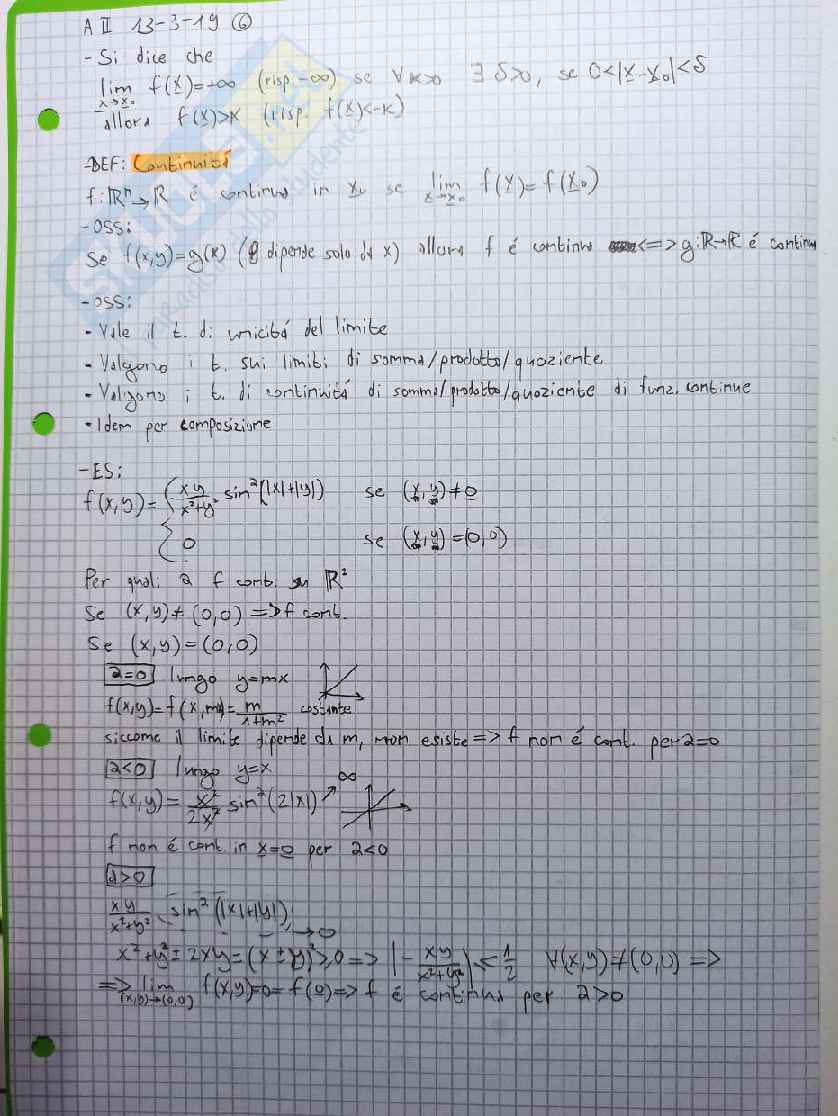 A II 13-3-19 ⑥
- Si dice che
lim f(x)=+∞ (risp. -∞) se ∀k>0 ∃ δ>0, se 0<|x-x₀|<δ
x→x₀
allora f(x)>k (risp. f(x)<-k)
-DEF: Continuitá
f:ℝⁿ→ℝ é continua in x₀ se lim f(x)=f(x₀)
x→x₀
-OSS:
Se f(x,y)=g(x) (f dipende solo da x) allora f é continua <=> g:ℝ→ℝ é continua
-OSS:
- Vale il t. di unicitá del limite
- Valgono i t. sui limiti di somma/prodotto/quoziente
- Valgono i t. di continuitá di somma/prodotto/quoziente di funz. continue
- Idem per composizione
-ES:
f(x,y)={ xy/(x²+y²) sin²(|x|+|y|) se (x,y)≠0
{ 0 se (x,y)=(0,0)
Per quali a f cont. su ℝ²
Se (x,y)≠(0,0) => f cont.
Se (x,y)=(0,0)
a=0 lungo y=mx
f(x,y)=f(x,mx)=m/(1+m²) costante
siccome il limite dipende da m, non esiste => f non é cont. per a=0
a<0 lungo y=x
∞
f(x,y)= x²/2x² sin²(2|x|)
f non é cont. in x=0 per a<0
a>0
xy/(x²+y²) sin²(|x|+|y|)
→0
x²+y²±2xy=(x±y)²≥0 => |-xy/(x²+y²)|≤1/2 ∀(x,y)≠(0,0) =>
=> lim f(x,y)=0=f(0)=> f é continua per a>0
(x,y)→(0,0)